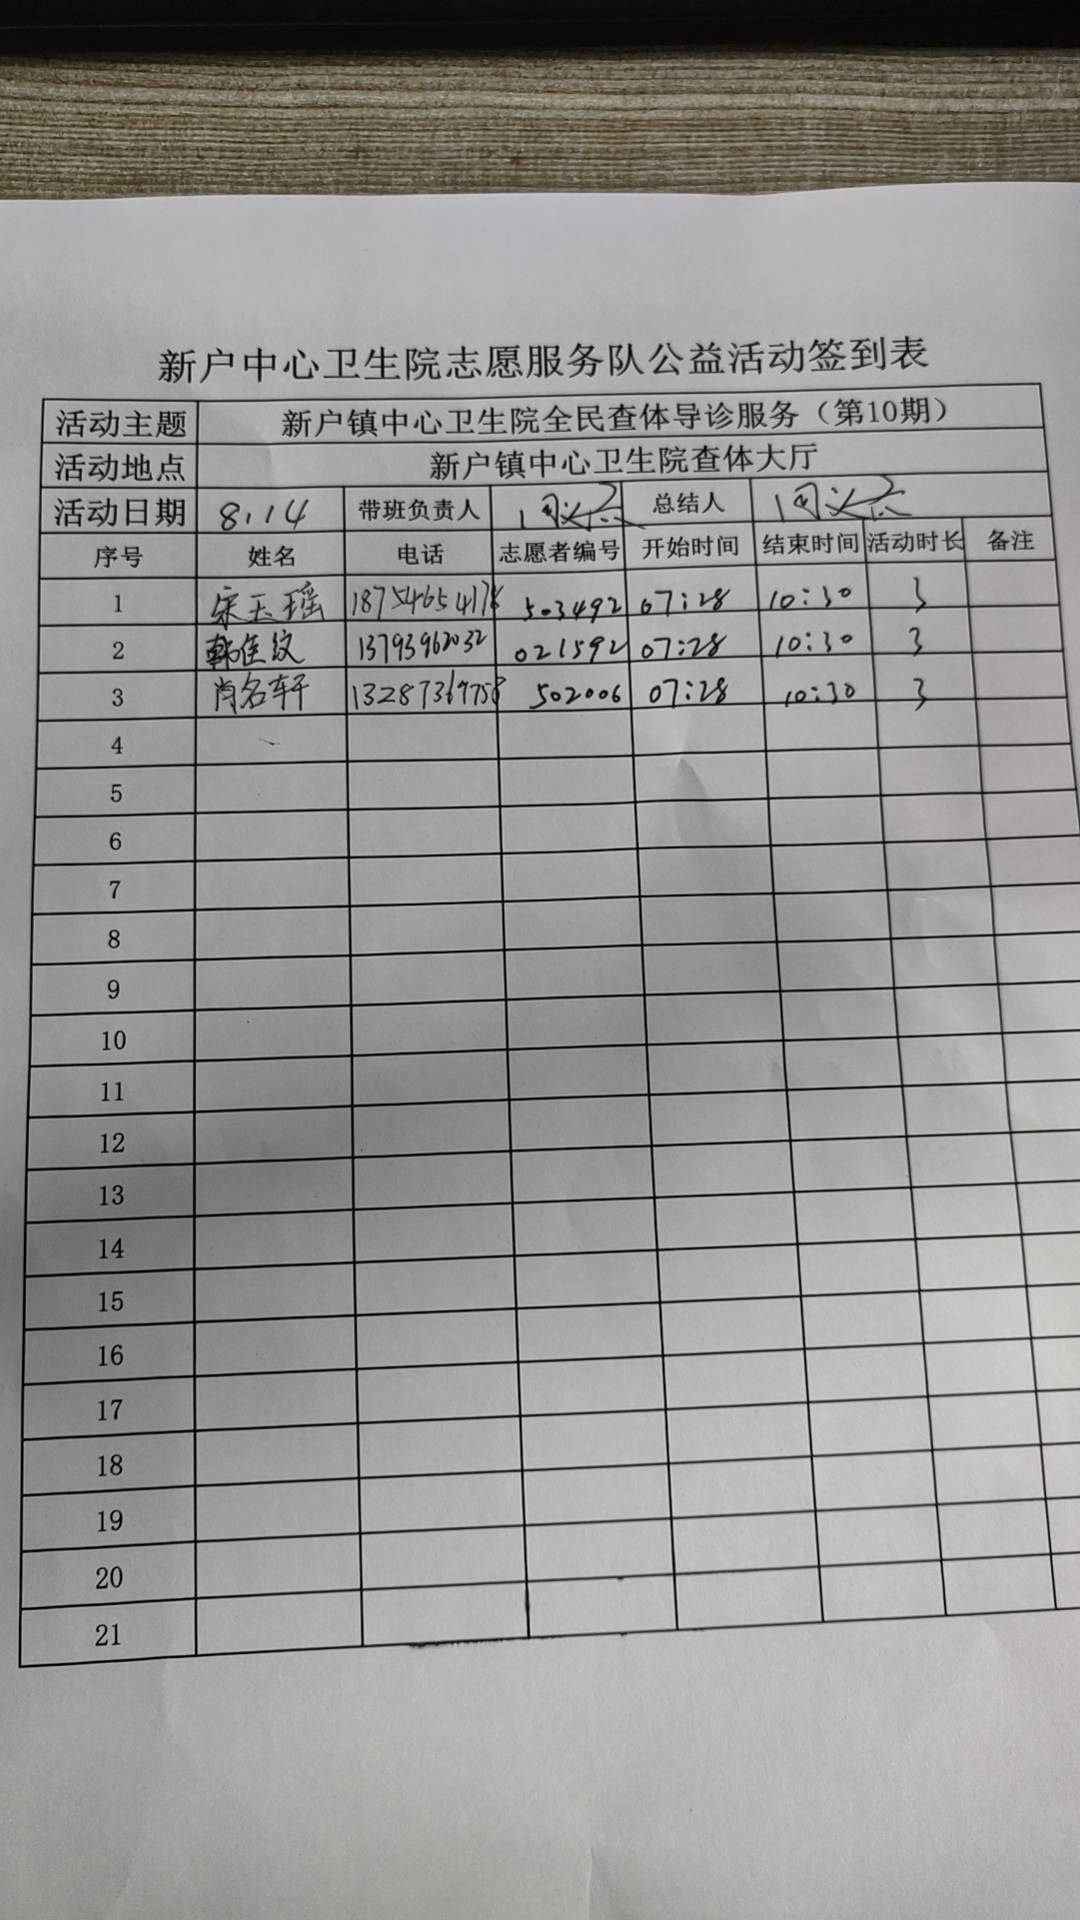 新户中心卫生院志愿服务队公益活动签到表
活动主题 新户镇中心卫生院全民查体导诊服务（第10期）
活动地点 新户镇中心卫生院查体大厅
活动日期 8.14 带班负责人 总结人
序号 姓名 电话 志愿者编号 开始时间 结束时间 活动时长 备注
1 宋玉瑶 18754654178 503492 07:28 10:30 3
2 韩佳纹 13793962032 021592 07:28 10:30 3
3 肖名轩 13287369758 502006 07:28 10:30 3
4
5
6
7
8
9
10
11
12
13
14
15
16
17
18
19
20
21